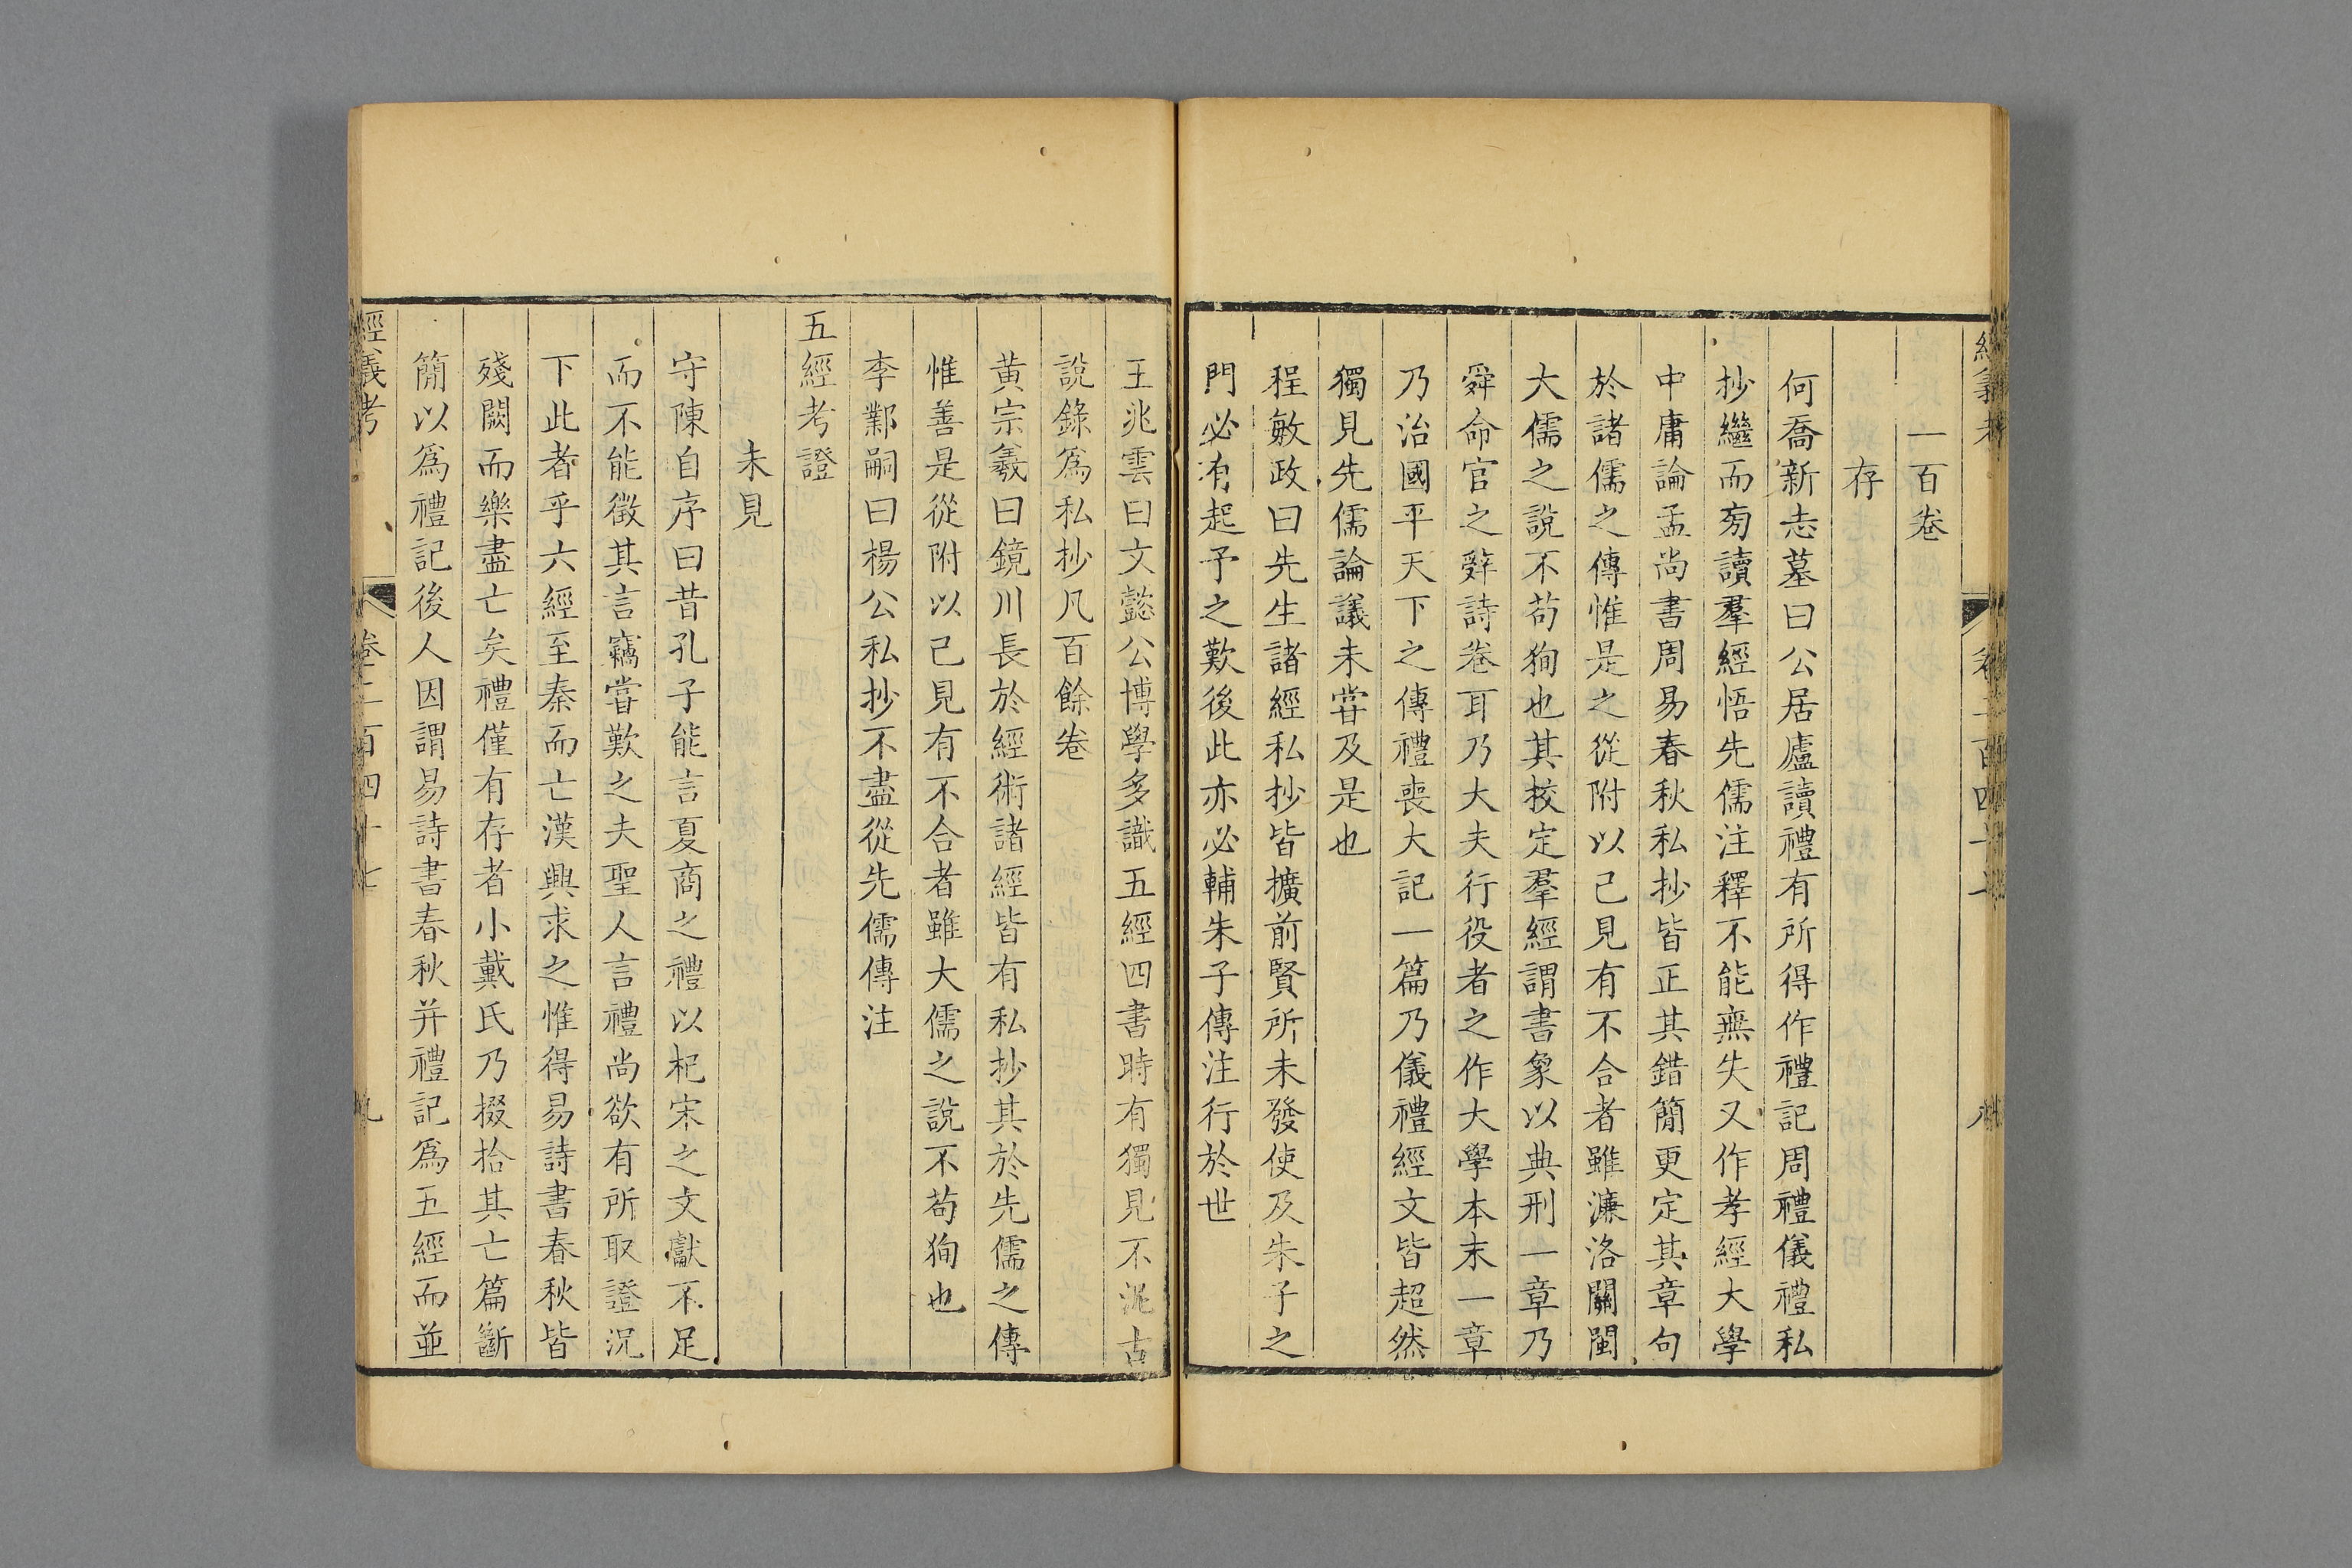 經義考 卷二百四十七 八
一百卷
存
何喬新志墓曰公居廬讀禮有所得作禮記周禮儀禮私
抄繼而徧讀羣經悟先儒注釋不能無失又作孝經大學
中庸論孟尚書周易春秋私抄皆正其錯簡更定其章句
於諸儒之傳惟是之從附以己見有不合者雖濂洛關閩
大儒之說不苟狥也其挍定羣經謂書象以典刑一章乃
舜命官之辤詩卷耳乃大夫行役者之作大學本末一章
乃治國平天下之傳禮喪大記一篇乃儀禮經文皆超然
獨見先儒論議未甞及是也
程敏政曰先生諸經私抄皆擴前賢所未發使及朱子之
門必有起予之歎後此亦必輔朱子傳注行於世
王兆雲曰文懿公博學多識五經四書時有獨見不泥古
說錄爲私抄凡百餘卷
黄宗羲曰鏡川長於經術諸經皆有私抄其於先儒之傳
惟善是從附以己見有不合者雖大儒之說不苟狥也
李鄴嗣曰楊公私抄不盡從先儒傳注
五經考證
未見
守陳自序曰昔孔子能言夏商之禮以杞宋之文獻不足
而不能徵其言竊嘗歎之夫聖人言禮尚欲有所取證况
下此者乎六經至秦而亡漢興求之惟得易詩書春秋皆
殘闕而樂盡亡矣禮僅有存者小戴氏乃掇拾其亡篇斷
簡以爲禮記後人因謂易詩書春秋并禮記爲五經而並
經義考 卷二百四十七 九